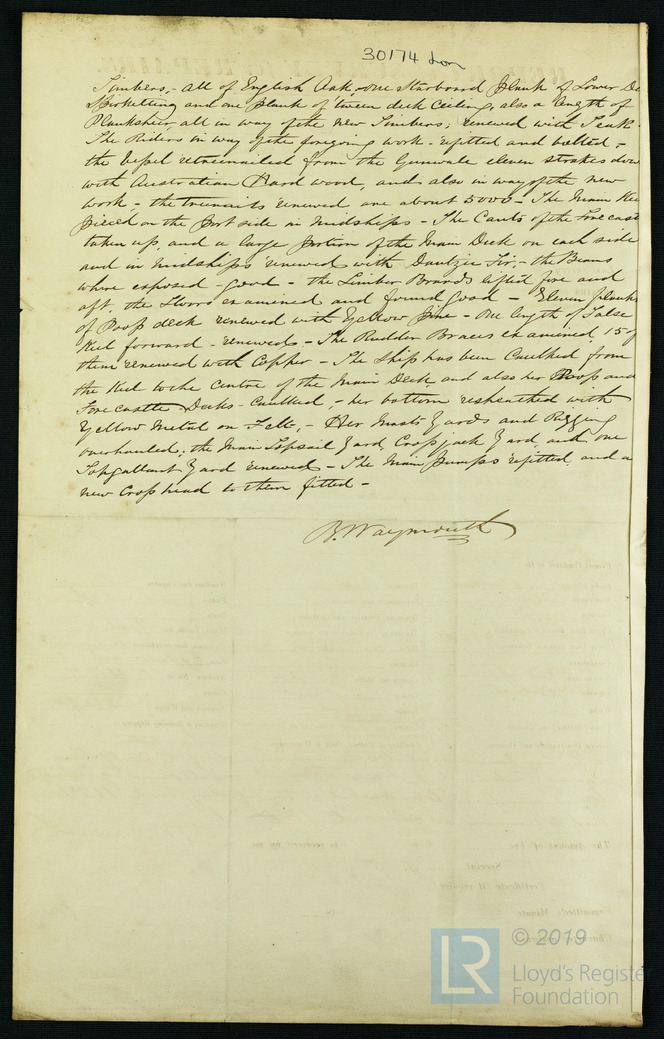 30174 Lon
Timbers,- all of English Oak,- one Starboard plank of Lower De
Spirketting and one plank of tween deck Ceiling, also a length of
Planksheer, all in way of the new Timbers, renewed with Teak -
The Riders in way of the foregoing work - refitted and bolted -
the Vessel retreenailed from the Gunwale eleven strakes down
with Australian Hard wood, and also in way of the new
work,- the treenails renewed are about 5000 - The Main Kee
pieced on the port side in midships - The Cants of the Forecast
taken up, and a large portion of the Main Deck on each side
and in midships renewed with Dantzic Fir,- the Beams
where exposed - good - the Limber Boards lifted fore and
aft, the Floors examined and found good - Eleven planks
of Poop deck renewed with Yellow Pine - One length of False
Keel forward - renewed - The Rudder Braces examined, 15 of
them renewed with Copper - The Ship has been Caulked from
the Keel to the Centre of the Main Deck, and also her Poop and
Forecastle Decks - Caulked,- her bottom resheathed with
Yellow Metal on Felt,- Her Masts Yards and Rigging
overhauled, the Main Topsail Yard, Crossjack Yard, and one
Topgallant Yard renewed - The Main pumps refitted, and a
new Crosshead to them fitted -
B. Waymouth
LR
© 2019
Lloyd's Register
Foundation